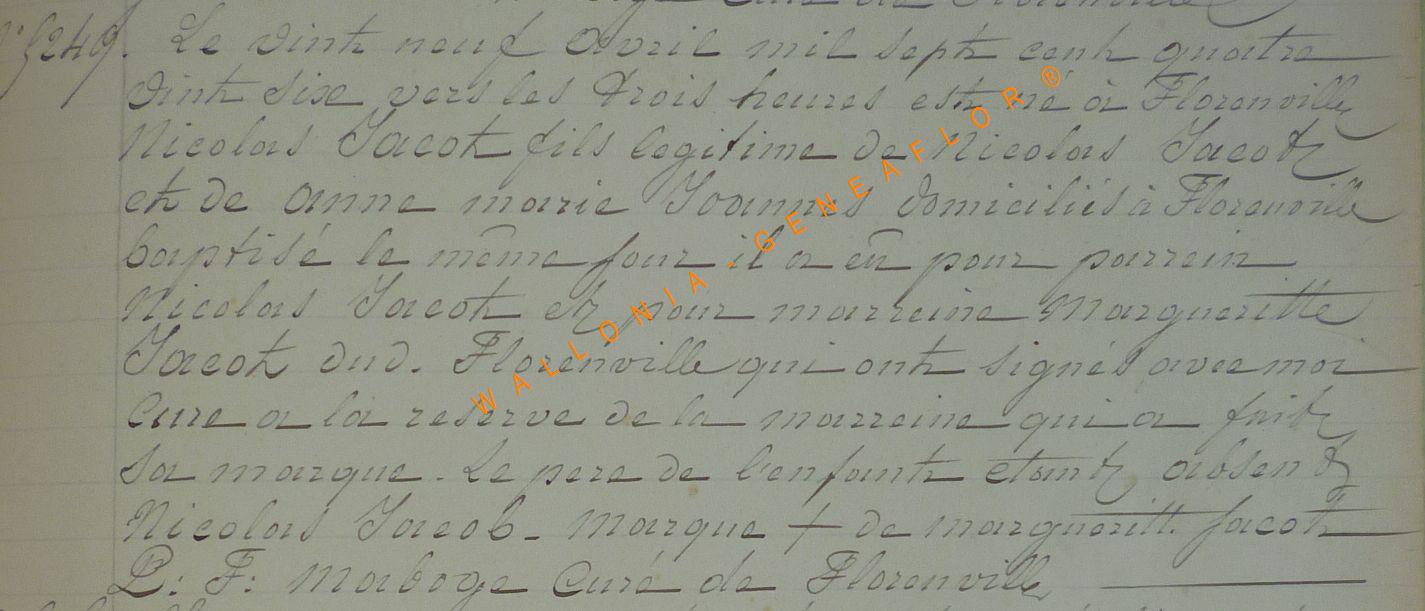 N° 5249. Le vint neuf avril mil sept cent quatre
vint six vers les trois heures est né à Florenville
Nicolas Jacot fils legitime de Nicolas Jacot
et de anne marie Joannes domiciliés à Florenville
baptisé le même jour il a eû pour parrein
Nicolas Jacot et pour marreine Margueritte
Jacot dud. Florenville qui ont signés avec moi
Cure a la reserve de la marreine qui a fait
sa marque. Le pere de l'enfant etant absent
Nicolas Jacob. marque + de margueritt. Jacot
P: F: Maboge Curé de Florenville
WALLONIA - GENEAFLOR ®